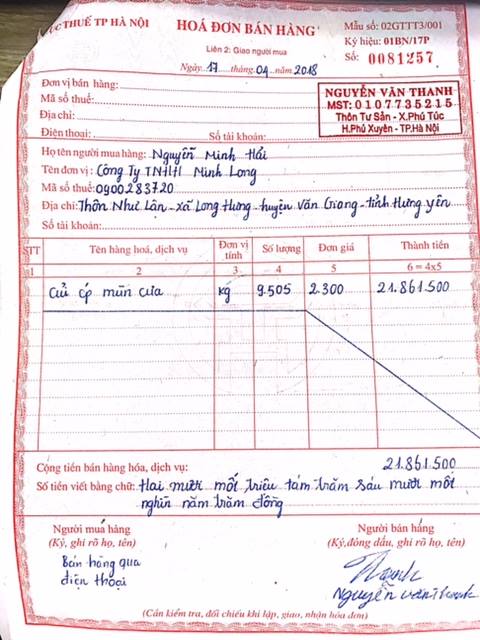 CỤC THUẾ TP HÀ NỘI
HOÁ ĐƠN BÁN HÀNG
Mẫu số: 02GTTT3/001
Liên 2: Giao người mua
Ký hiệu: 01BN/17P
Ngày 17 tháng 04 năm 2018
Số: 0081257
Đơn vị bán hàng:
Mã số thuế:
Địa chỉ:
Điện thoại: Số tài khoản:
NGUYỄN VĂN THANH
MST: 0107735215
Thôn Tư Sản - X.Phú Túc
H.Phú Xuyên - TP.Hà Nội
Họ tên người mua hàng: Nguyễn Minh Hải
Tên đơn vị: Công Ty TNHH Minh Long
Mã số thuế: 0900283720
Địa chỉ: Thôn Như Lân - xã Long Hưng - huyện Văn Giang - tỉnh Hưng yên
Số tài khoản:
STT Tên hàng hoá, dịch vụ Đơn vị tính Số lượng Đơn giá Thành tiền
1 2 3 4 5 6 = 4x5
Củi ép mùn cưa kg 9.505 2.300 21.861.500
Cộng tiền bán hàng hóa, dịch vụ: 21.861.500
Số tiền viết bằng chữ: Hai mươi mốt triệu tám trăm sáu mươi mốt
nghìn năm trăm đồng
Người mua hàng Người bán hàng
(Ký, ghi rõ họ, tên) (Ký, đóng dấu, ghi rõ họ, tên)
Bán hàng qua
điện thoại
Thanh
Nguyễn văn Thanh
(Cần kiểm tra, đối chiếu khi lập, giao, nhận hóa đơn)